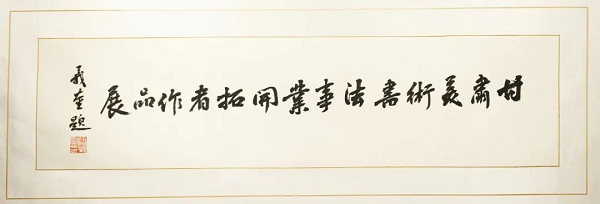 甘肅美術書法事業開拓者作品展
義奎題